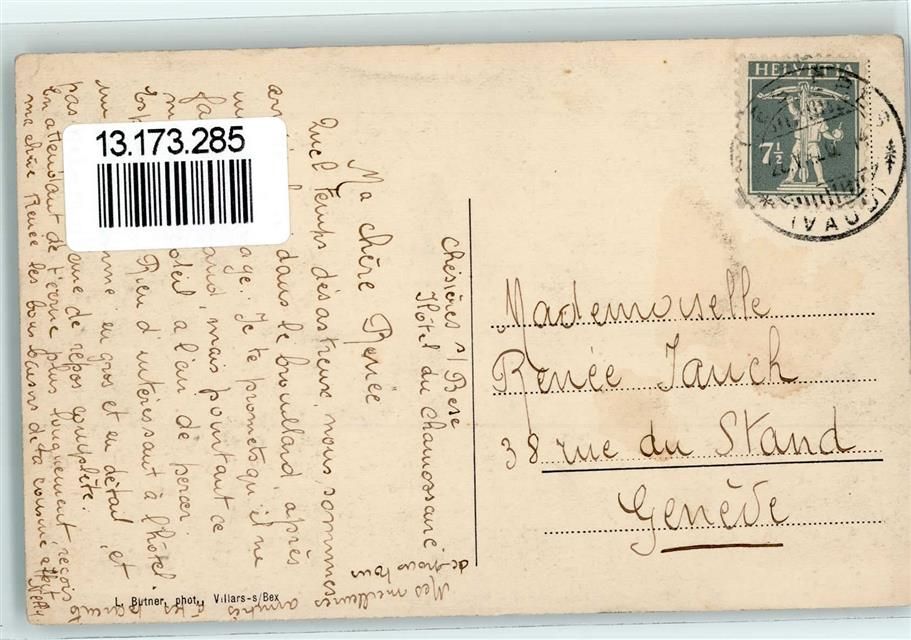 13.173.285
HELVETIA
7½
(VAUD)
Chésières s/ Bexe
Hôtel du Chamossaire
Ma chère Renée
Quel temps désastreux, nous sommes
dans le brouillard, après
age. Je te promets qu'il ne
mais pourtant ce
soleil a l'air de percer.
Rien d'intéressant à l'hôtel.
en gros et en détail, et
de repos complète.
En attendant de t'écrire plus longuement reçois
ma chère Renée les bons baisers de ta cousine
Nelly
Mes meilleures amitiés à tes parents
de nous tous
Mademoiselle
Renée Jauch
38 rue du Stand
Genève
L. Butner, phot., Villars-s/Bex